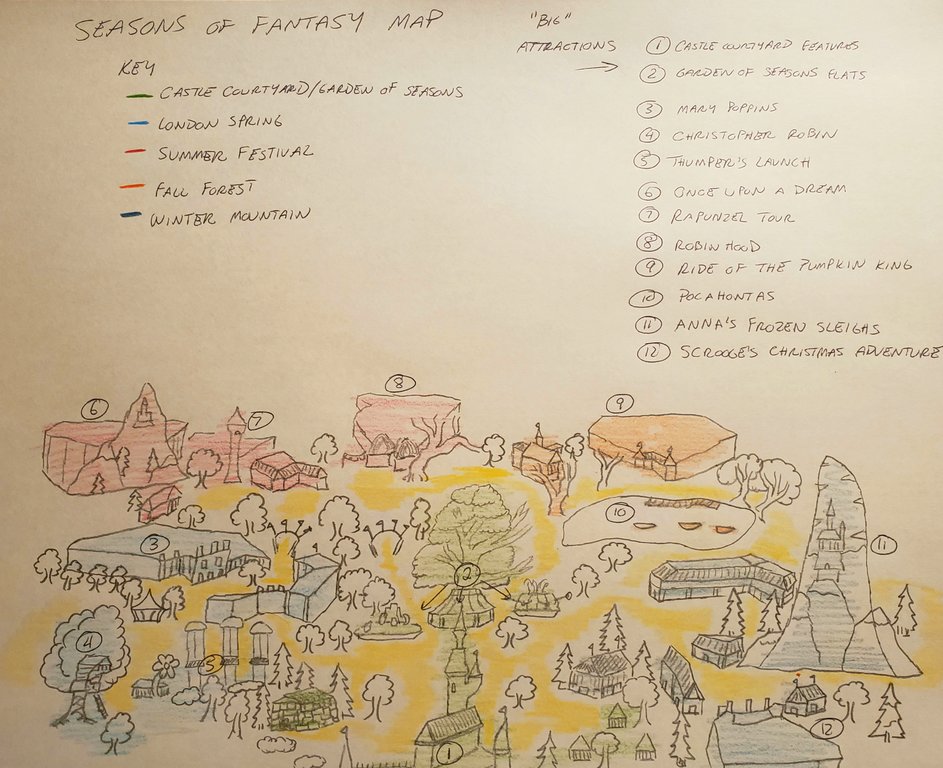 SEASONS OF FANTASY MAP
KEY
CASTLE COURTYARD/GARDEN OF SEASONS
LONDON SPRING
SUMMER FESTIVAL
FALL FOREST
WINTER MOUNTAIN
"BIG"
ATTRACTIONS
1 CASTLE COURTYARD FEATURES
2 GARDEN OF SEASONS FLATS
3 MARY POPPINS
4 CHRISTOPHER ROBIN
5 THUMPER'S LAUNCH
6 ONCE UPON A DREAM
7 RAPUNZEL TOUR
8 ROBIN HOOD
9 RIDE OF THE PUMPKIN KING
10 POCAHONTAS
11 ANNA'S FROZEN SLEIGHS
12 SCROOGE'S CHRISTMAS ADVENTURE
8
6
7
9
10
3
11
2
4
5
12
1